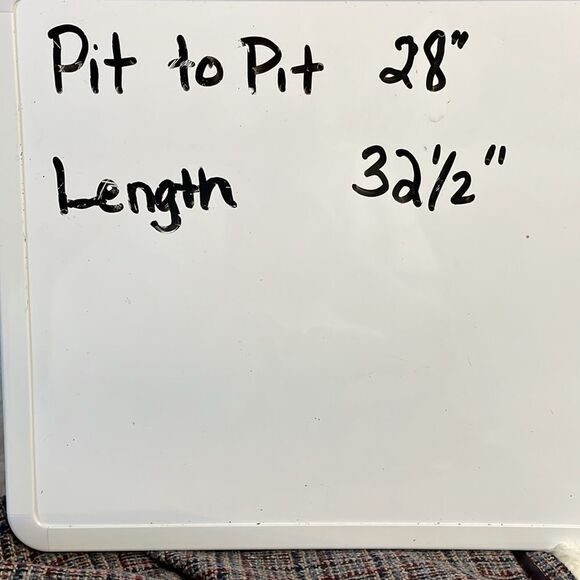 Pit to Pit 28"
Length 32 1/2"